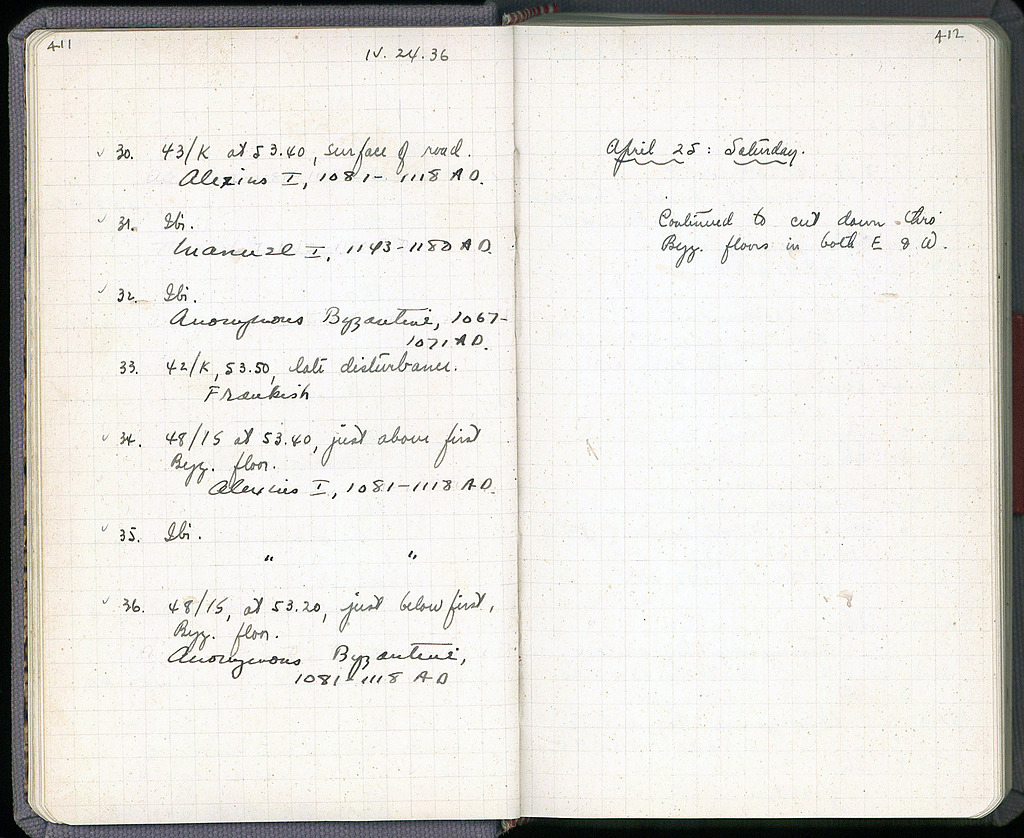 411
IV. 24. 36
✓ 30. 43/K at 53.40, surface of road.
Alexius I, 1081- 1118 A D.
✓ 31. Ibi.
Manuel I, 1143-1180 A D.
✓ 32. Ibi.
Anonymous Byzantine, 1067-
1071 A D.
33. 42/K, 53.50, late disturbance.
Frankish
✓ 34. 48/15 at 53.40, just above first
Byz. floor.
Alexius I, 1081-1118 A.D.
✓ 35. Ibi.
" "
✓ 36. 48/15, at 53.20, just below first,
Byz. floor.
Anonymous Byzantine,
1081-1118 A D
412
April 25: Saturday.
Continued to cut down thro'
Byz. floors in both E & W.